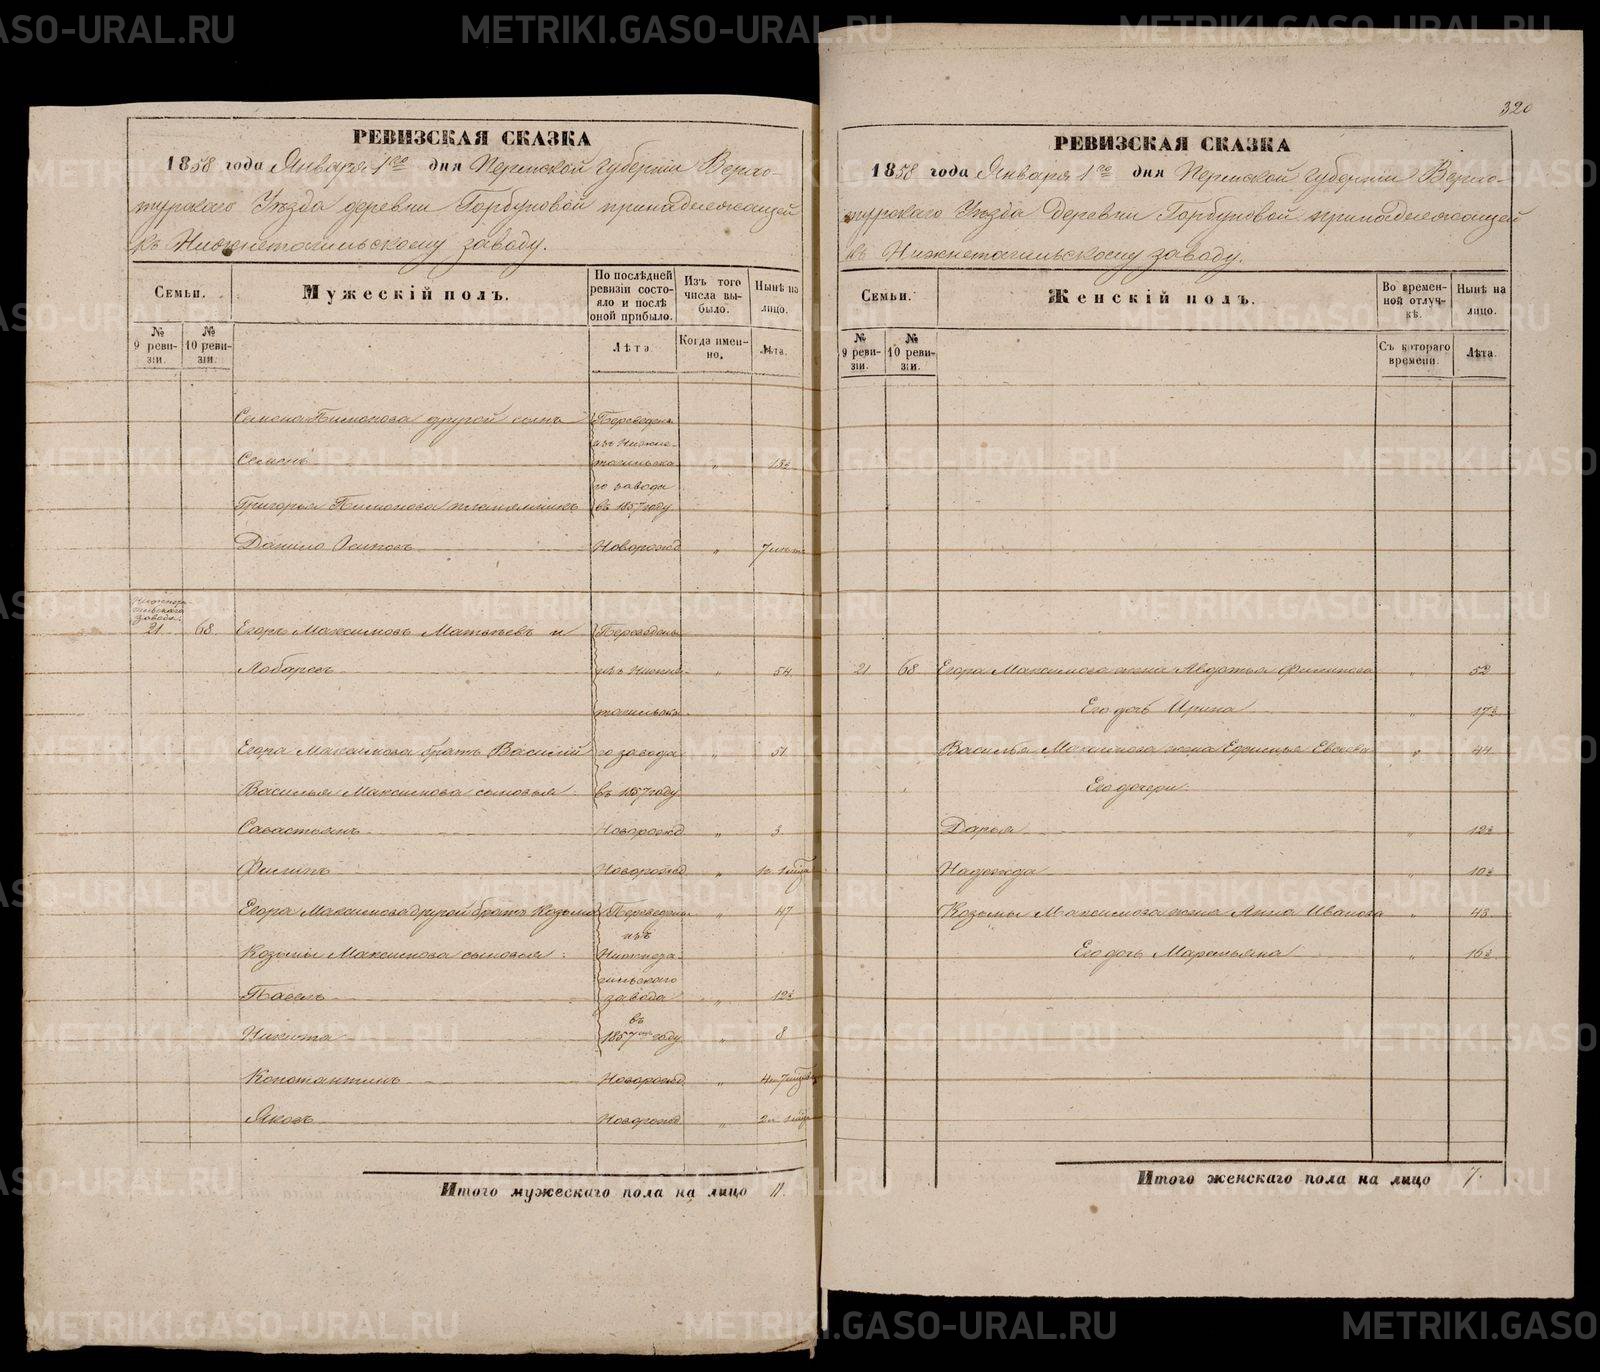 РЕВИЗСКАЯ СКАЗКА
1858 года Января 1го дня Пермской губернии Верхо-
турскаго Уѣзда деревни Горбуновой принадлежащей
къ Нижнетагильскому заводу.
Семьи.
№ 9 ревизіи.
№ 10 ревизіи.
Мужескій полъ.
По послѣдней ревизіи состояло и послѣ оной прибыло.
Лѣта.
Изъ того числа выбыло.
Когда именно.
Нынѣ на лицо.
Лѣта.
Семена Пимонова другой сынъ Переведенъ
изъ Нижне-
Семенъ тагильска " 13½
го завода
Григорья Пимонова племянникъ въ 1857 году
Данило Осиповъ Новорожд " 7
Нижнета-
гильскаго
завода.
21 68 Егоръ Максимовъ Матвѣевъ и Переведенъ
изъ Нижне- " 54
тагильска
Егора Максимова братъ Василій го завода " 51
Василья Максимова сыновья: въ 1857 году
Савастьянъ Новорожд " 3
Филипъ Новорожд "
Егора Максимова другой братъ Козьма Переведены " 47
изъ
Козьмы Максимова сыновья: Нижнета
гильскаго
Павелъ завода " 12½
въ
Никита 1857мъ году " 8
Константинъ Новорожд "
Яковъ Новорожд "
Итого мужескаго пола на лицо 11.
320
РЕВИЗСКАЯ СКАЗКА
1858 года Января 1го дня Пермской губернии Верхо-
турскаго Уѣзда деревни Горбуновой принадлежащей
къ Нижнетагильскому заводу.
Семьи.
№ 9 ревизіи.
№ 10 ревизіи.
Женскій полъ.
Во временной отлучкѣ.
Съ котораго времени.
Нынѣ на лицо.
Лѣта.
21 68 Егора Максимова жена Авдотья Филипова " 52
Его дочь Ирина " 17½
Василья Максимова жена " 44
Его дочери:
Дарья " 12½
Надежда " 10½
Козьмы Максимова жена Анна Иванова " 43
Его дочь Маремьяна " 16½
Итого женскаго пола на лицо 7.
METRIKI.GASO-URAL.RU